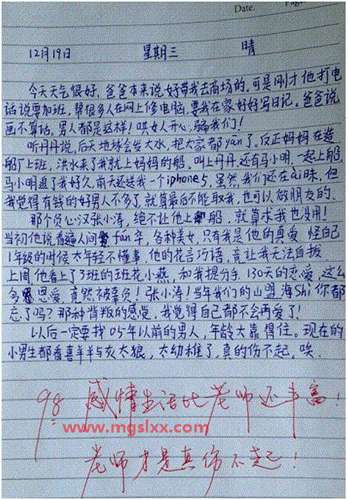 Date.
Page
12月19日 星期三 晴
今天天气很好,爸爸本来说好带我去商场的。可是刚才他打电
话说要加班,帮很多人在网上修电脑,要我在家好好写日记。爸爸说
画不算话,男人都是这样!哄女人开心,骗我们!
听丹丹说,后天地球会发大水,把大家都yan了,反正妈妈在造
船厂上班,洪水来了我就上妈妈的船,叫上丹丹还有马小明,一起上船,
马小明追了我好久,前天还送我一个iphone5,虽然我们还在ai昧,但
我觉得有钱的好男人不多了,就算最后不能取我,也可以做朋友的。
那个负心汉张小涛,绝不让他上船,就算求我也没用!
当初他说看遍人间fan华,各种美女,只有我是他的真爱,怪自己
1年级的时候太年轻不懂事,他的花言巧语,竟让我无法自拔
上周他看上了3班的班花小燕,和我提分手,130天的恋爱,这么
多恩爱,竟然被辜负!张小涛!当年我们的山盟海shi你都
忘了吗?那种背叛的感觉,我觉得自己都不会再爱了!
以后一定要找05年以前的男人,年龄大靠得住。现在的
小男生都看喜羊羊与灰太狼,太幼稚了,真的伤不起,唉
98 感情生活比老师还丰富!
www.mgslxx.com
老师才是真伤不起!